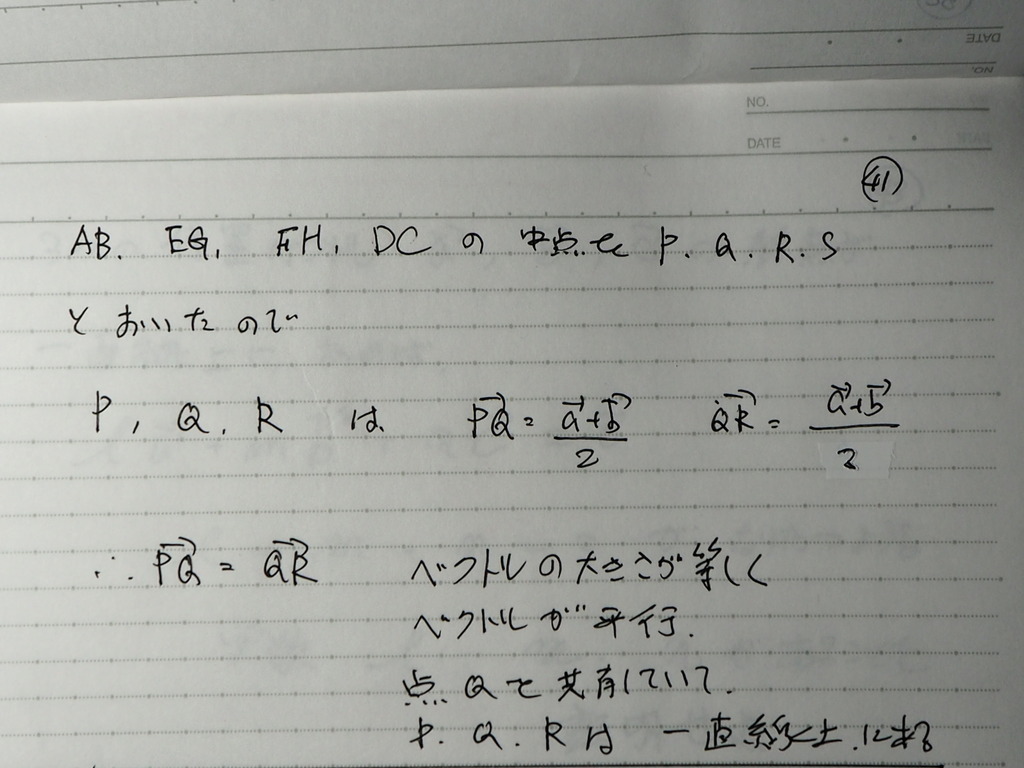 NO.
DATE
㊶
AB. EG, FH, DC の 中点を P. Q. R. S
とおいたので
P, Q, R は $\overrightarrow{PQ} = \frac{\vec{a}+\vec{b}}{2}$ $\overrightarrow{QR} = \frac{\vec{a}+\vec{b}}{2}$
∴ $\overrightarrow{PQ} = \overrightarrow{QR}$ ベクトルの大きさが等しく
ベクトルが平行.
点Qを共有していて.
P. Q. R は 一直線上にある